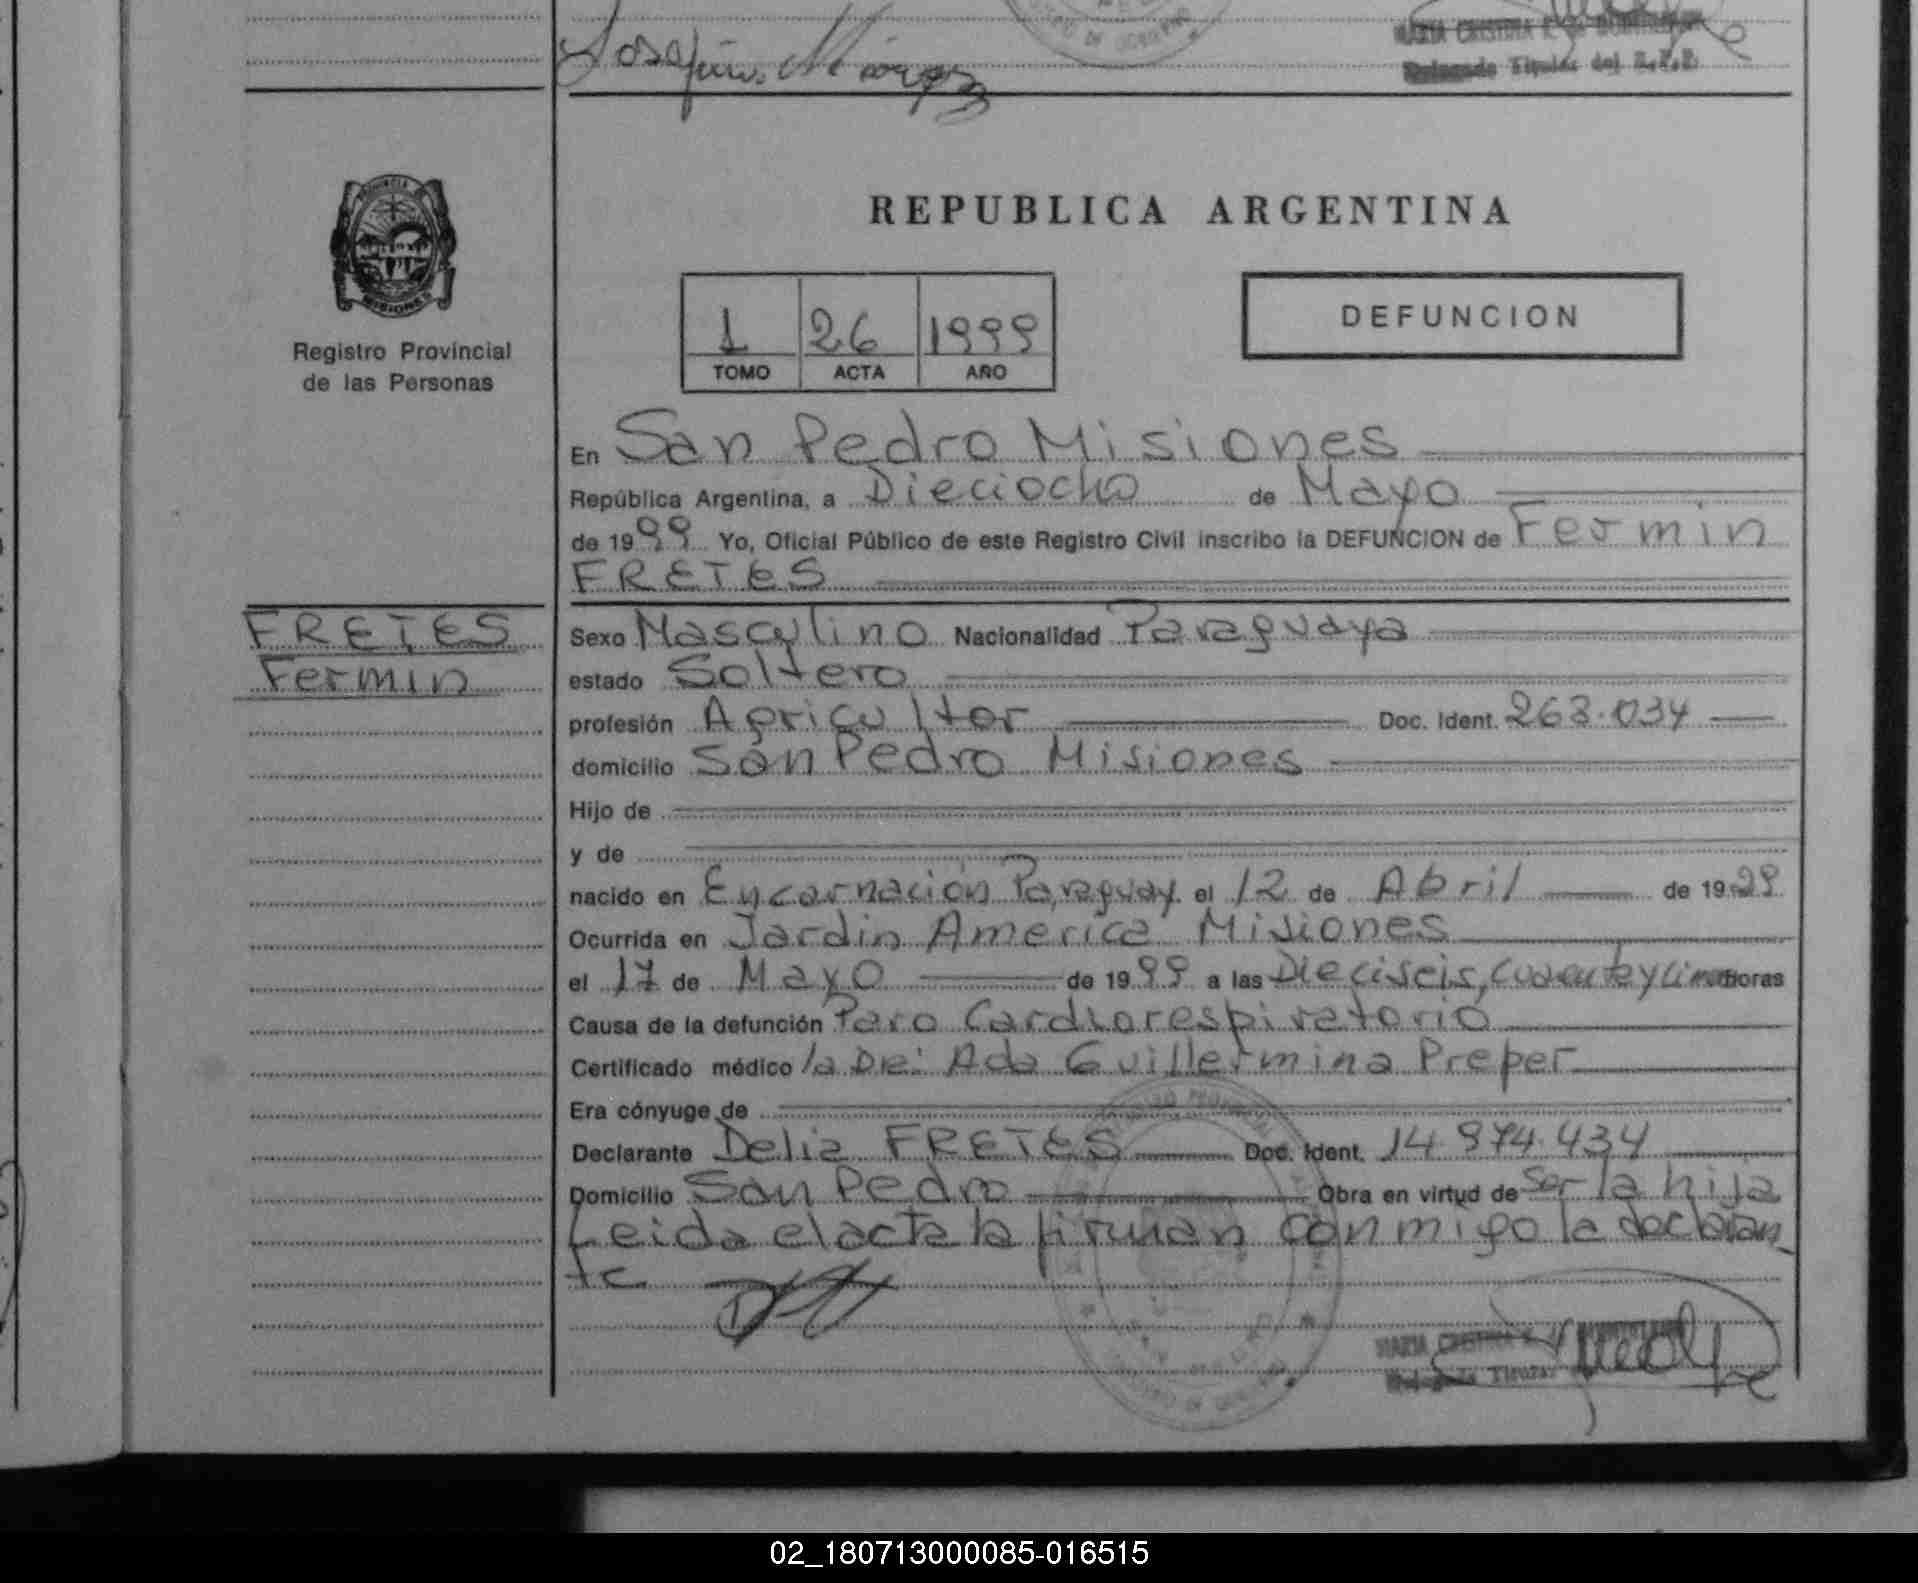 Josefina Marquez
REPUBLICA ARGENTINA
PROVINCIA DE
MISIONES
Registro Provincial
de las Personas
1 26 1999
TOMO ACTA AÑO
DEFUNCION
En San Pedro Misiones
República Argentina, a Dieciocho de Mayo
de 1999 Yo, Oficial Público de este Registro Civil inscribo la DEFUNCION de Fermin
FRETES
FRETES
Fermin
Sexo Masculino Nacionalidad Paraguaya
estado Soltero
profesión Agricultor Doc. Ident. 263.034
domicilio San Pedro Misiones
Hijo de
y de
nacido en Encarnación Paraguay el 12 de Abril de 1929
Ocurrida en Jardin America Misiones
el 17 de Mayo de 1999 a las Dieciseis, Cuarenta y Horas
Causa de la defunción Paro Cardiorespiratorio
Certificado médico la Dra: Ada Guillermina Preper
Era cónyuge de
Declarante Delia FRETES Doc. Ident. 14.974.434
Domicilio San Pedro Obra en virtud de Ser la hija
Leida el acta la firman con migo la declaran
te
MARIA CRISTINA
Titular
02_180713000085-016515